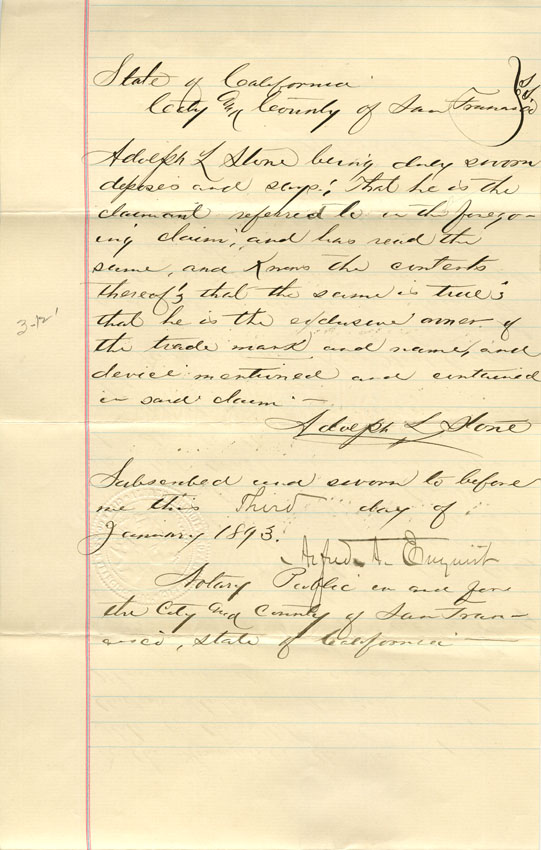 State of California
City and County of San Francisco } S.S.
Adolph L Stone being duly sworn
deposes and says; That he is the
claimant referred to in the forego-
ing claim, and has read the
same, and Knows the contents
thereof; that the same is true;
that he is the exclusive owner of
the trade mark and name, and
device mentioned and contained
in said claim —
Adolph L Stone
Subscribed and sworn to before
me this Third day of
January 1893.
Alfred A. Enquist
Notary Public in and for
the City and County of San Fran-
cisco, State of California
3-12